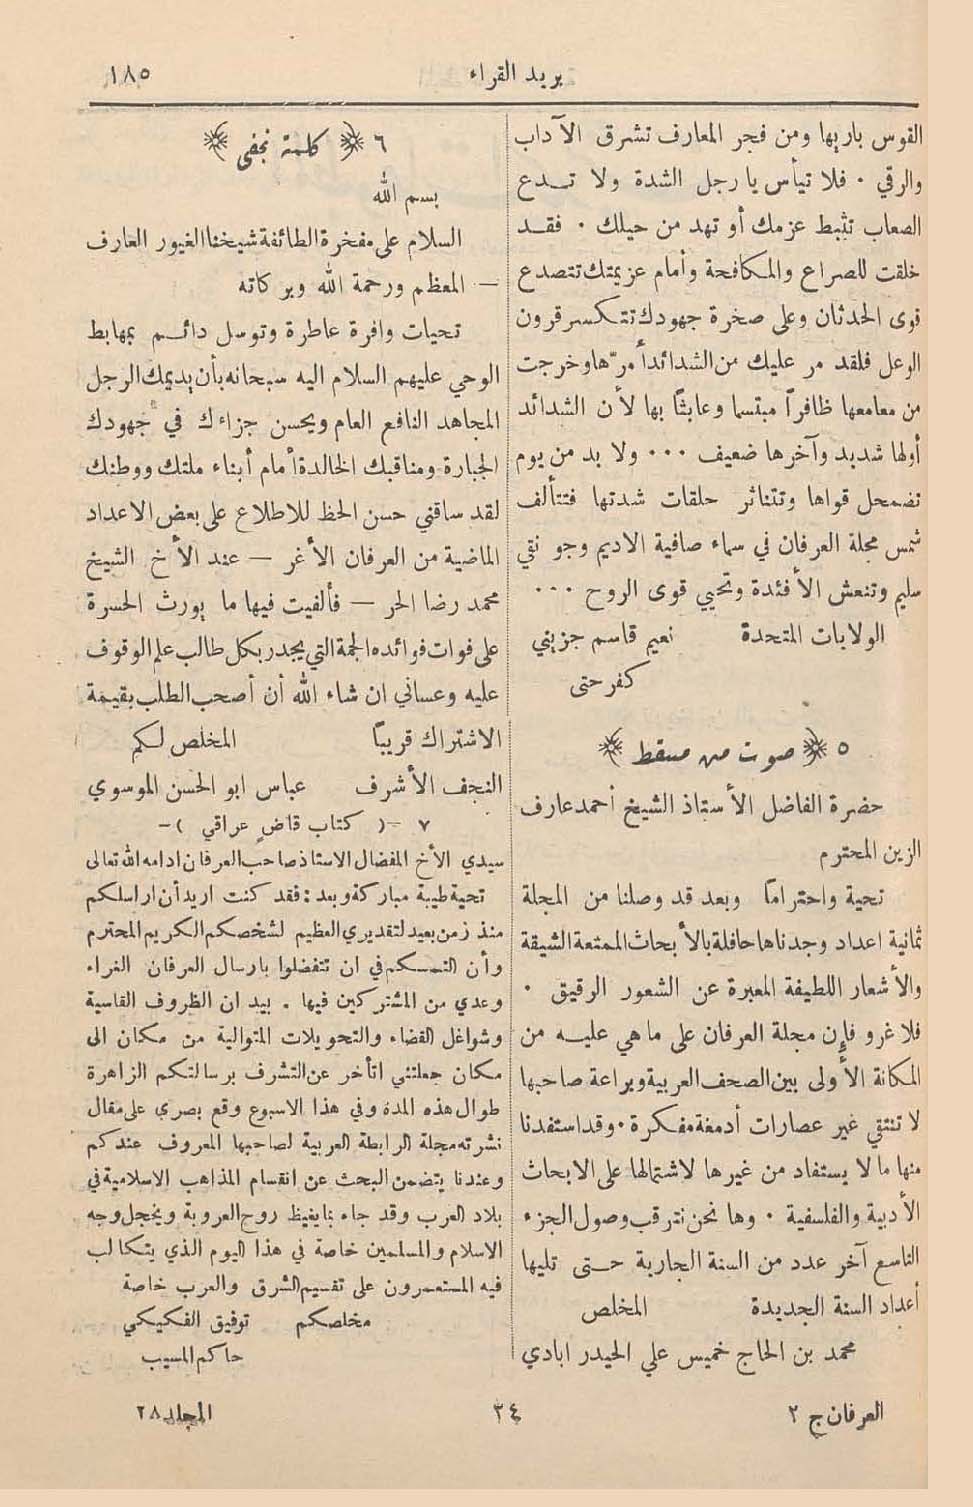 بريد القراء
١٨٥
القوس باريها ومن فجر المعارف تشرق الآداب
والرقي ٠ فلا تيأس يا رجل الشدة ولا تــدع
الصعاب تثبط عزمك أو تهد من حيلك ٠ فقــد
خلقت للصراع والمكافحة وأمام عزيمتك تتصدع
قوى الحدثان وعلى صخرة جهودك تتكسر قرون
الوعل فلقد مر عليك من الشدائد أمرّها وخرجت
من معامعها ظافراً مبتسما وعابثاً بها لأن الشدائد
أولها شديد وآخرها ضعيف ٠٠٠ ولا بد من يوم
تضمحل قواها وتتناثر حلقات شدتها فتتألف
شمس مجلة العرفان في سماء صافية الاديم وجو نقي
سليم وتنعش الأفئدة وتحيي قوى الروح ٠٠٠
الولايات المتحدة نعيم قاسم جزيني
كفرحتى
٥ ﴿ صوت من مسقط ﴾
حضرة الفاضل الأستاذ الشيخ أحمد عارف
الزين المحترم
تحية واحتراماً وبعد قد وصلنا من المجلة
ثمانية اعداد وجدناها حافلة بالأبحاث الممتعة الشيقة
والأشعار اللطيفة المعبرة عن الشعور الرقيق ٠
فلا غرو فإن مجلة العرفان على ما هي عليــه من
المكانة الأولى بين الصحف العربية وبراعة صاحبها
لا تنتقي غير عصارات أدمغة مفكرة ٠ وقد استفدنا
منها ما لا يستفاد من غيرها لاشتمالها على الابحاث
الأدبية والفلسفية ٠ وها نحن نترقب وصول الجزء
التاسع آخر عدد من السنة الجارية حــتى تليها
أعداد السنة الجديدة المخلص
محمد بن الحاج خميس علي الحيدر ابادي
٦ ﴿ كلمة نجفي ﴾
بسم الله
السلام على مفخرة الطائفة شيخنا الغيور العارف
— المعظم ورحمة الله وبركاته
تحيات وافرة عاطرة وتوسل دائــم بمهابط
الوحي عليهم السلام اليه سبحانه بأن يديمك الرجل
المجاهد النافع العام ويحسن جزاءك في جهودك
الجبارة ومناقبك الخالدة أمام أبناء ملتك ووطنك
لقد ساقني حسن الحظ للاطلاع على بعض الاعداد
الماضية من العرفان الأغر — عند الأخ الشيخ
محمد رضا الحر — فألفيت فيها ما يورث الحسرة
على فوات فوائده الجمة التي يجدر بكل طالب علم الوقوف
عليه وعساني ان شاء الله أن أصحب الطلب بقيمة
الاشتراك قريباً المخلص لكم
النجف الأشرف عباس ابو الحسن الموسوي
٧ –( كتاب قاضٍ عراقي )–
سيدي الأخ المفضال الاستاذ صاحب العرفان ادامه الله تعالى
تحية طيبة مباركة وبعد : فقد كنت اريد أن اراسلكم
منذ زمن بعيد لتقديري العظيم لشخصكم الكريم المحترم
وأن التمسكم في ان تتفضلوا بارسال العرفان الغراء
وعدي من المشتركين فيها . بيد ان الظروف القاسية
وشواغل القضاء والتحويلات المتوالية من مكان الى
مكان جعلتني اتأخر عن التشرف برسالتكم الزاهرة
طوال هذه المدة وفي هذا الاسبوع وقع بصري على مقال
نشرته مجلة الرابطة العربية لصاحبها المعروف عندكم
وعندنا يتضمن البحث عن انقسام المذاهب الاسلامية في
بلاد العرب وقد جاء بما يغيظ روح العروبة ويخجل وجه
الاسلام والمسلمين خاصة في هذا اليوم الذي يتكالب
فيه المستعمرون على تقسيم الشرق والعرب خاصة
مخلصكم توفيق الفكيكي
حاكم المسيب
العرفان ج ٢
٢٤
المجلد ٢٨